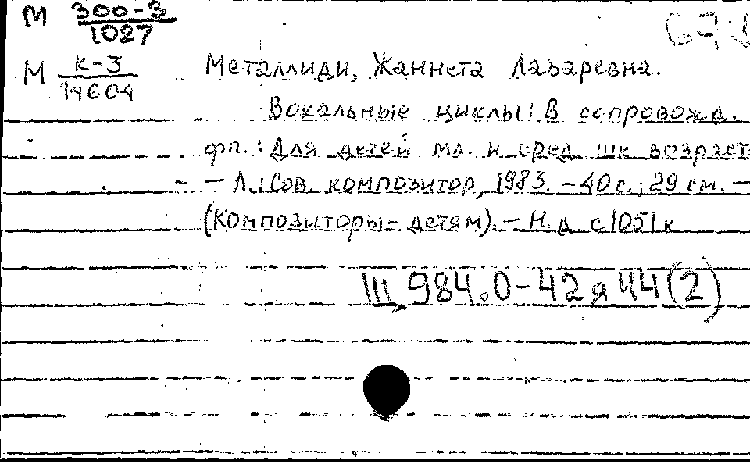 М 300-3
1027
М К-3
14604
Металлиди, Жаннета Лазаревна.
Вокальные циклы: В сопровожд.
фп.: Для детей мл. и сред. шк. возраст
– Л.: Сов. композитор, 1983. – 40 с.; 29 см. –
(Композиторы – детям). – Н. д. с 1051 к
Щ 984.0-42 я 44 (2)